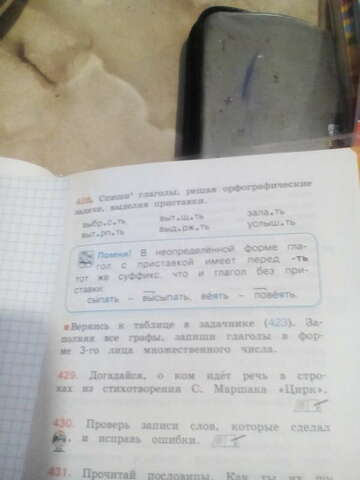 428. Спиши¹ глаголы, решая орфографические
задачи, выделяя приставки.
выбр.с.ть выт.щ.ть зала.ть
выт.рп.ть выд.рж.ть услыш.ть
Помни! В неопределённой форме гла-
гол с приставкой имеет перед -ть
тот же суффикс, что и глагол без при-
ставки:
сыпать – высыпать, веять – повеять.
Вернись к таблице в задачнике (423). За-
полняя все графы, запиши глаголы в фор-
ме 3-го лица множественного числа.
429. Догадайся, о ком идёт речь в стро-
ках из стихотворения С. Маршака «Цирк».
430. Проверь записи слов, которые сделал
, и исправь ошибки.
431. Прочитай пословицы. Как ты их по